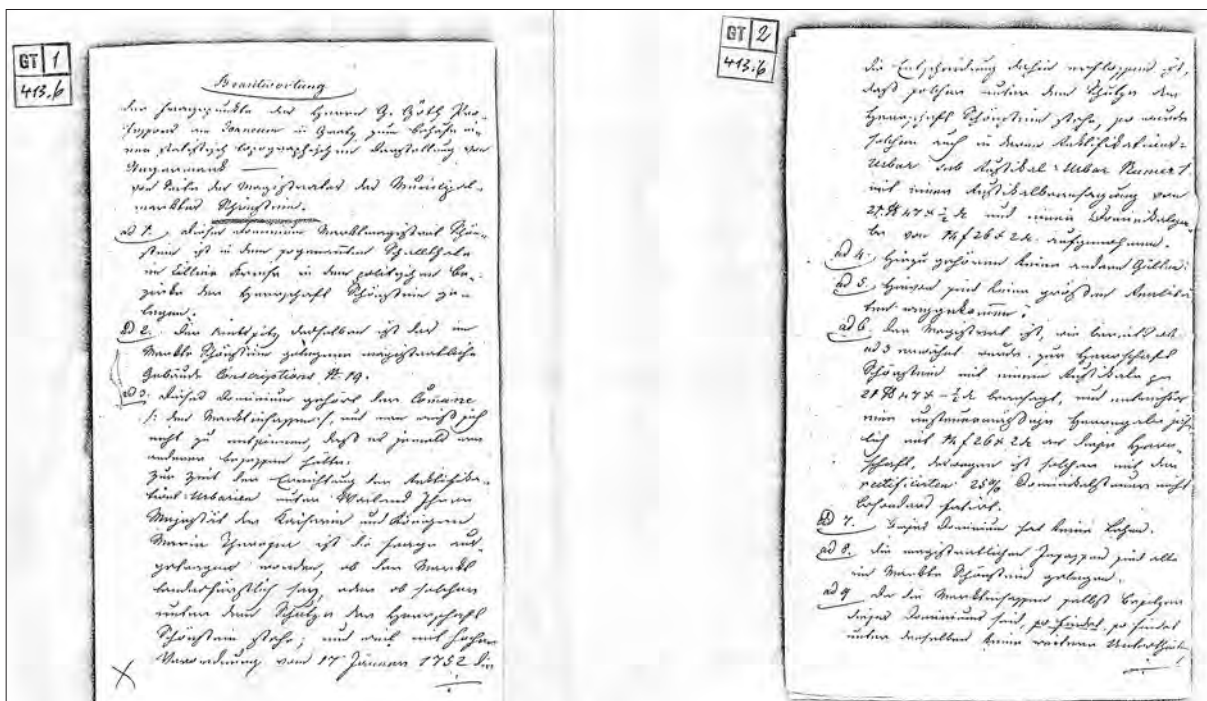 GT 1
413.b
Beantwortung
der Fragepunkte des Herrn G. Göth Pro-
fessors am Joanneum in Gratz zum Behufe ei-
ner statistisch topographischen Darstellung von
Steyermark —
von Seite des Magistrates des Municipal-
marktes Schönstein.
ad 1. Dieses Dominium Marktmagistrat Schön-
stein ist in dem sogenannten Schallthale
im Cillier Kreise in dem politischen Be-
zirke der Herrschaft Schönstein ge-
legen.
ad 2. Der Amtssitz desselben ist das im
Markte Schönstein gelegene magistratliche
Gebäude Conscriptions N. 19.
ad 3. Dieses Dominium gehört der Comune
/: den Marktinsassen :/, und man weiß sich
nicht zu entsinnen, daß es jemals wer
anderer besessen hätte.
Zur Zeit der Errichtung der Rektifika-
tions-Urbarien unter Weiland Ihrer
Majestät der Kaiserin und Königin
Maria Theresia ist die Frage
worden, ob der Markt
landesfürstlich sey, oder ob solcher
unter dem Schutze der Herrschaft
Schönstein stehe; und weil mit hoher
Verordnung vom 17 Jänner 1752 die
GT 2
413.b
die Entscheidung dahin erflossen ist,
daß solcher unter dem Schutze der
Herrschaft Schönstein stehe, so wurde
solcher auch in deren Rektifikations-
Urbar sub Rustikal-Urbar Numer 1.
mit einer Rustikalbeansagung von
21 ₰ 47 x ½ d und einer Dominikalga-
be von 14 f 26 x 2 d. aufgenohmen.
ad 4. Hierzu gehören keine andern Gülten.
ad 5. Hievon sind keine größern Realitä-
ten weggekommen.
ad 6. Der Magistrat ist, wie bereits ob
ad 3 erwähnt wurde zur Herrschaft
Schönstein mit einem Rustikale pr
21 ₰ 47 x - ½ d beansagt, und entrichtet
eine Herrengabe jähr-
lich mit 14 f 26 x 2 d an diese Herr-
schaft, deswegen ist solcher mit der
rectificirten 25% Dominikalsteuer nicht
besonders fatirt.
ad 7. Dieses Dominium hat keine Lehen.
ad 8. Die magistratlichen Insassen sind alle
im Markte Schönstein gelegen.
ad 9 Da die Marktinsassen selbst Besitzer
dieses Dominiums sind, so findet so findet
unter denselben keine weitern